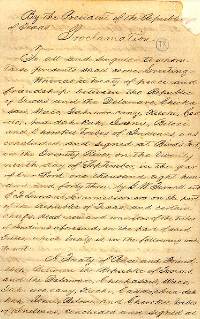 By the President of the Republic
of Texas
Proclamation
To all and Singular to whom
these presents shall come, Greeting
Whereas a treaty of peace and
friendship between the Republic
of Texas and the Delaware, Chicka
saw, Waco, Tah-woc-cany, Keechi, Cad
do, Ana-dah-kah, Ionie, Biloxi
and Cherokee tribes of Indians, was
concluded and signed at Bird's Fort
on the Trinity River on the twenty
ninth day of September in the year
of our Lord one thousand eight hun
dred and forty three, by G. W. Terrell and
E. H. Tarrant Commissioners on the part
of the Republic of Texas, and certain
chiefs, Head men and warriors of the tribes
of Indians aforesaid, on the part of said
tribes, which treaty is in the following words
to wit:
A Treaty of Peace and Friend
ship, between the Republic of Texas
and the Delaware, Chickasaw, Waco,
Tah-woc-cany, Keechi, Caddo, Ana-dah-
kah, Ionie, Biloxi, and Cherokee tribes
of Indians, concluded and signed at